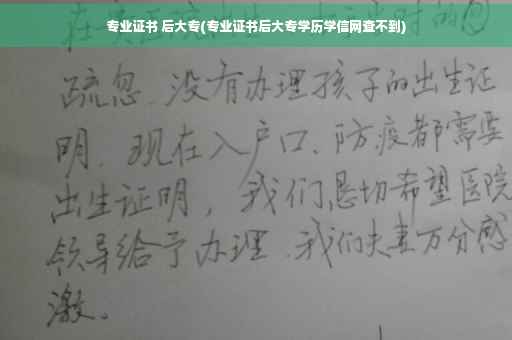 专业证书 后大专(专业证书后大专学历学信网查不到)
疏忽、没有办理孩子的出生证
明、现在入户口、防疫都需要
出生证明,我们恳切希望医院
领导给予办理、我们夫妻万分感
激。